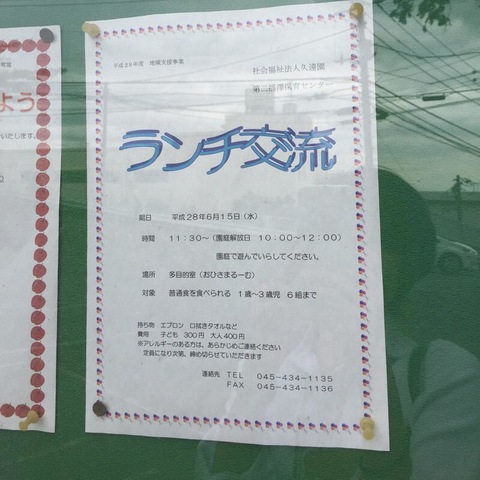 平成28年度 地域支援事業
社会福祉法人久遠園
保育センター
ランチ交流
期日 平成28年6月15日(水)
時間 11:30~(園庭解放日 10:00~12:00)
園庭で遊んでいらしてください。
場所 多目的室(おひさまるーむ)
対象 普通食を食べられる 1歳~3歳児 6組まで
持ち物 エプロン 口拭きタオルなど
費用 子ども 300円 大人400円
※アレルギーのある方は、あらかじめご連絡ください
定員になり次第、締め切らせていただきます
連絡先 TEL 045-434-1135
FAX 045-434-1136
よう
いたします。